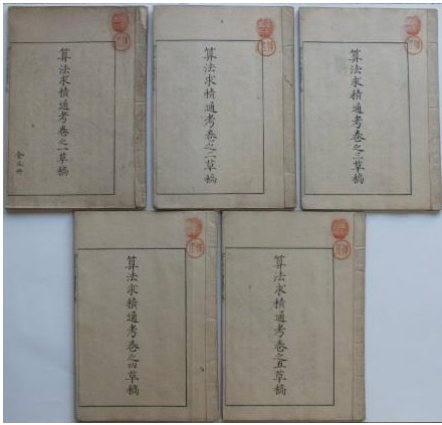 算法求積通考卷之一草稿
全五冊
算法求積通考卷之二草稿
算法求積通考卷之三草稿
算法求積通考卷之四草稿
算法求積通考卷之五草稿